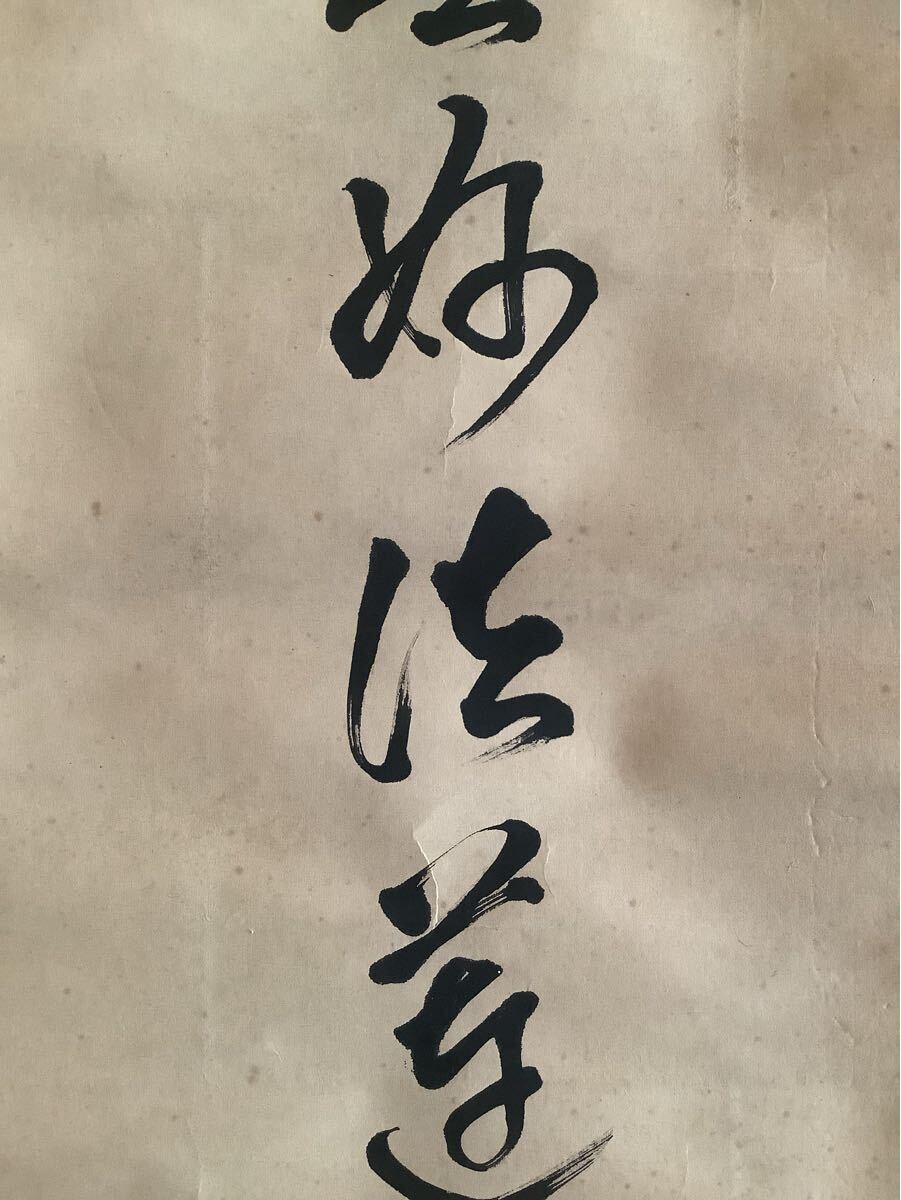 妙法蓮